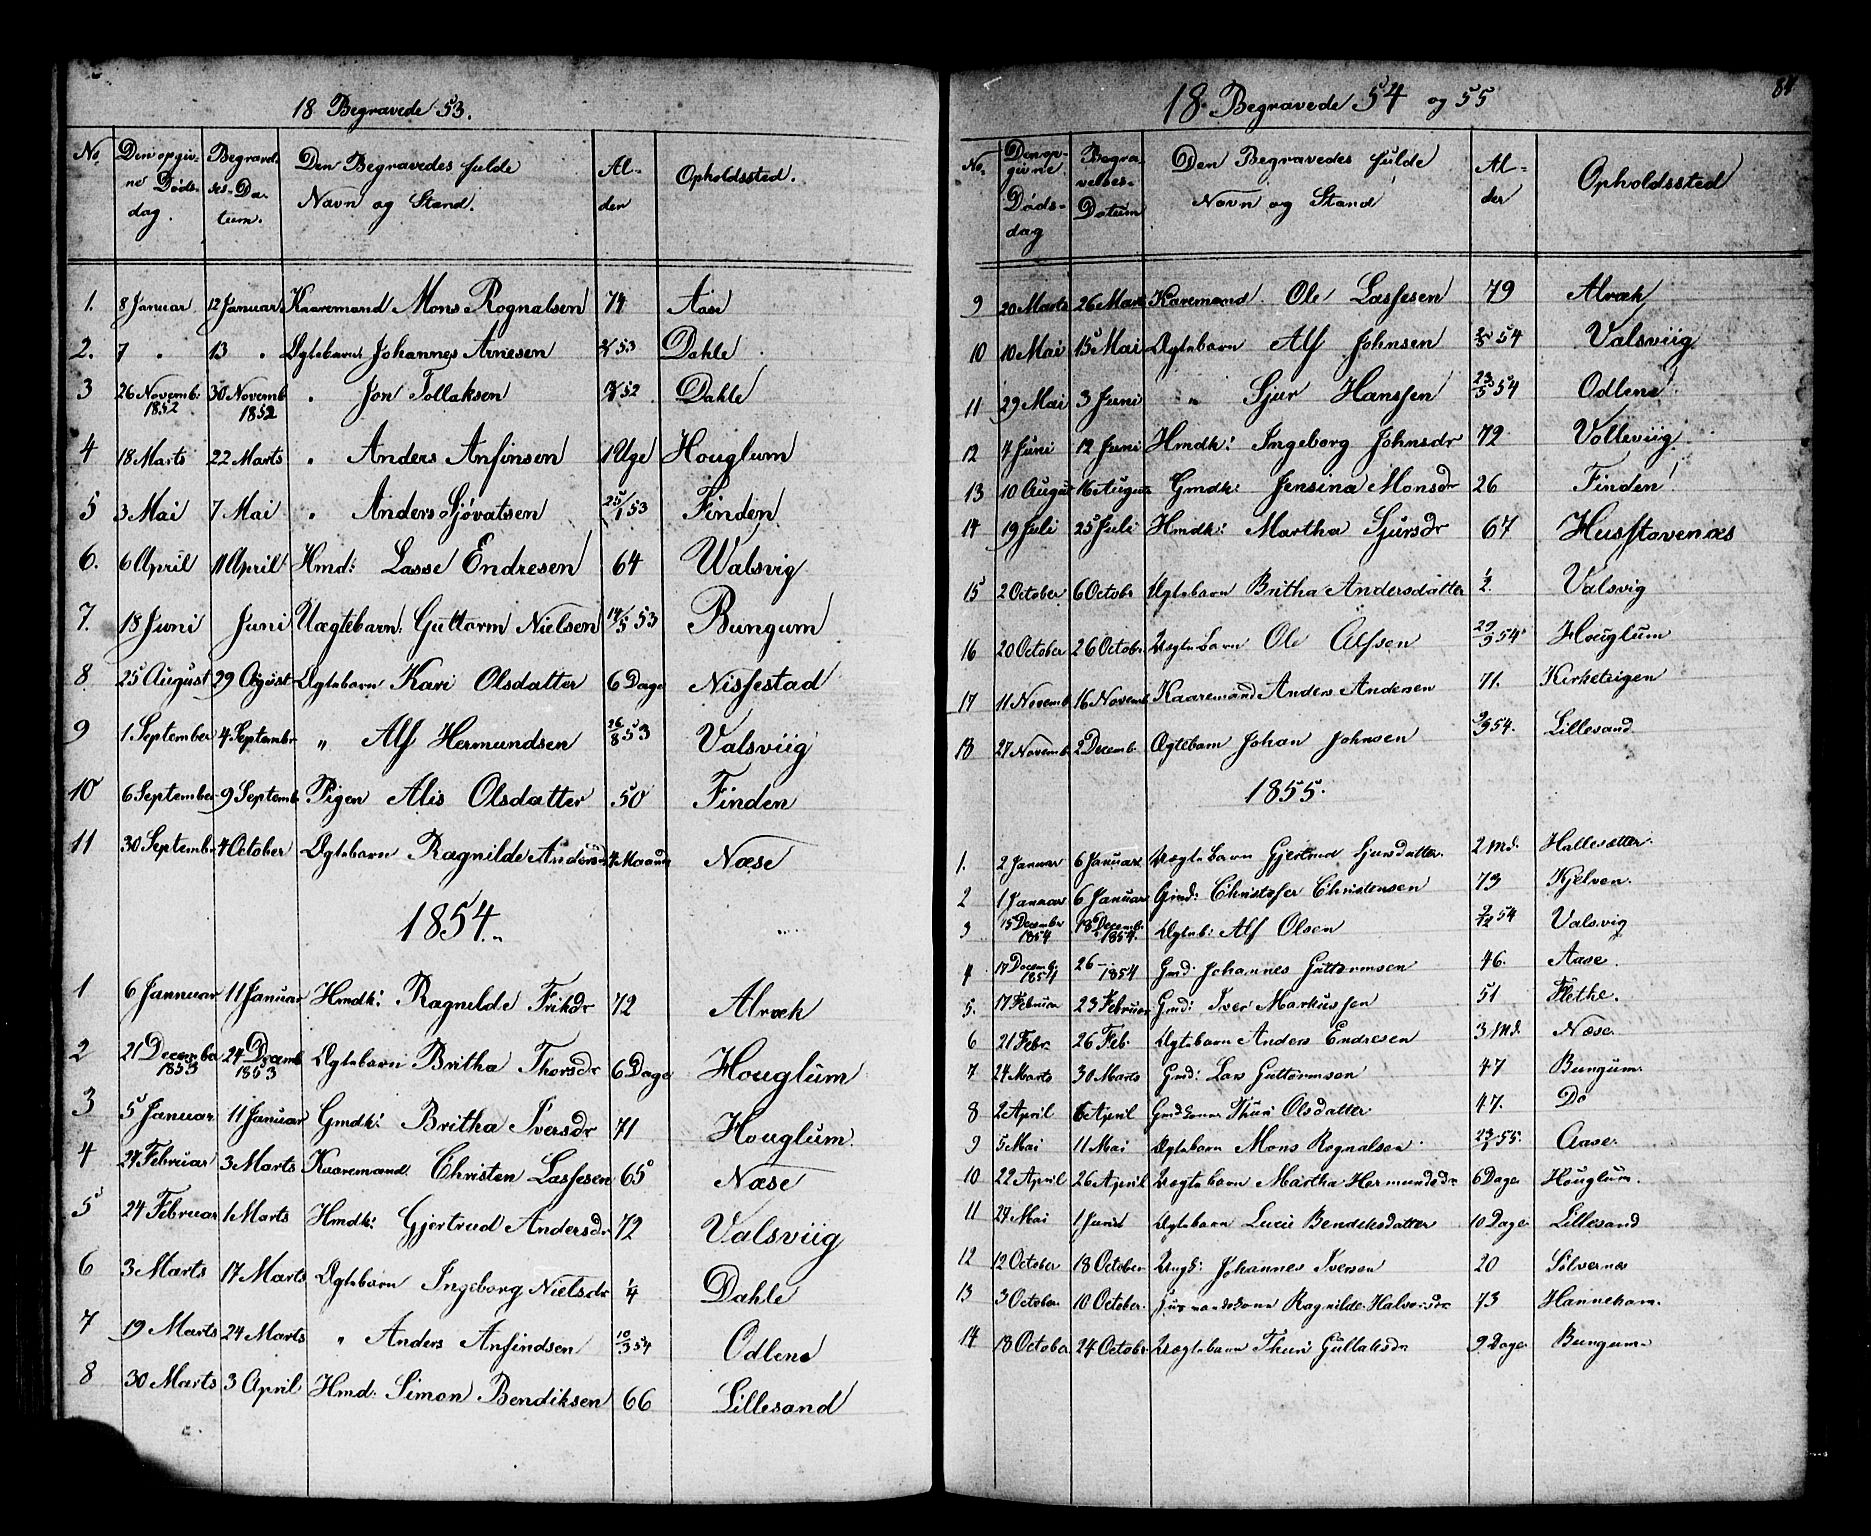 18 Begravede 53.
No. Den opgiv- Begravel- Den Begravedes fulde Al- Opholdssted.
ne Døds- ses-Da- Navn og Stand. der
dag. tum.
1. 8 Januar 12 Januar Kaaremand Mons Rognalsen 74 Aase
2. 7 " 13 " Ægtebarn Johannes Arnesen 53 Dahle
3 26 Novemb. 1852 30 Novemb 1852 " Jon Tollaksen 52 Dahle
4 18 Marts 22 Marts " Anders Anfinsen 1 Uge Houglum
5 3 Mai 7 Mai " Anders Sjøvatsen 25/1 53 Finden
6. 6 April 11 April Hmd: Lasse Endresen 64 Walsvig
7. 18 Juni Juni Uægtebarn: Guttorm Nielsen 14/5 53 Bungum
8. 25 August 29 August Ægtebarn Kari Olsdatter 6 Dage Nissestad
9 1 September 4 Septembr " Alf Hermundsen 26/8 53 Valsviig
10 6 September 9 Septemb. Pigen Alis Olsdatter 50 Finden
11 30 Septembr 4 October Ægtebarn Ragnilde Andersdr 4 Maaned Næse
1854.
1 6 Jannuar 11 Januar Hmdk: Ragnilde Erikdr 72 Alræk
2 21 December 1853 24 Decemb 1853 Ægtebarn Britha Thorsdr 6 Dage Houglum
3 5 Januar 11 Januar Gmdk: Britha Iversdr 71 Houglum.
4 27 Februar 3 Marts Kaaremand Christen Lassesen 65 Næse
5 24 Februar 1 Marts Hmdk: Gjertrud Andersdr 72 Valsviig
6 3 Marts 17 Marts Ægtebarn Ingeborg Nielsdr 1/4 Dahle
7 19 Marts 24 Marts " Anders Anfindsen 10/3 54 Odlene
8 30 Marts 3 April Hmd: Simon Bendiksen 66 Lillesand
84
18 Begravede 54 og 55
No. Den op- Begra- Den Begravedes fulde Al- Opholdssted
givne velses- Navn og Stand der
Døds- Datum
dag
9 20 Marts 26 Marts Kaaremand Ole Lassesen 79 Alræk
10 10 Mai 15 Mai Ægtebarn Alf Johnsen 2/5 54 Valsviig
11 29 Mai 3 Juni " Sjur Hanssen 23/5 54 Odlene
12 7 Juni 12 Juni Hmdk: Ingeborg Johnsdr 72 Volleviig
13 10 August 16 August Gmdk: Jensina Monsdr 26 Finden
14 19 Juli 25 Juli Hmdk: Martha Sjursdr 67 Husstavenæs
15 2 October 6 Octobr Ægtebarn Britha Andersdatter 1/2. Valsvig
16 20 October 26 Octobr Uægtebarn Ole Alfsen 29/9 54 Houglum
17 11 Novemb 16 Novemb Kaaremand Anders Andersen 71. Kirketeigen
18 27 Novemb. 2 Decemb. Ægtebarn Johan Johnsen 54. Lillesand
1855.
1. 2 Januar 6 Januar Uægtebarn Gjertrud Sjursdatter. 2 Md. Hallesætter.
2 1 Januar 6 Januar Gmd: Christofer Christensen 73 Kjelven.
3 15 December 1854 18 Decemb. 1854 Ægteb: Alf Olsen 54 Valsvig
4 17 Decemb. 1854 26 – 1854 Gmd: Johannes Guttormsen 46. Aase.
5. 17 Februar 23 Februar Gmd: Iver Markussen 51 Flethe.
6 21 Febr. 26 Feb. Ægtebarn Anders Endresen 3 Md. Næse.
7 24 Marts 30 Marts Gmd: Lars Guttormsen 47 Bungum.
8 2 April 6 April Gmdkone Thuri Olsdatter 47. Do
9 5 Mai 11 Mai Ægtebarn Mons Rognalsen 55. Aase.
10 22 April 26 April Uægtebarn Martha Hermundsdr 6 Dage Houglum.
11 24 Mai 1 Juni Ægtebarn Lucie Bendiksdatter 10 Dage Lillesand
12 12 October 18 October Ungk: Johannes Iversen 20 Sølvernes
13 3 October. 10 October. Huusmandskone Ragnilde Halvorsdr 73 Hanneham.
14 18 October 24 Octobr Uægtebarn Thuri Gullaksdr 9 Dage Bungum.